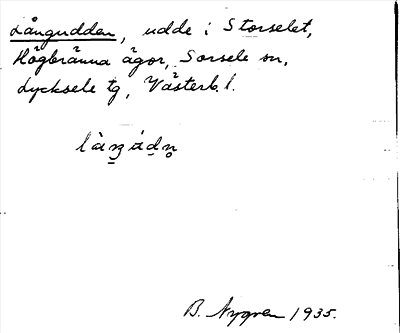 Långudden, udde i Storselet,
Högbränna ägor, Sorsele sn,
Lycksele tg, Västerb. l.
B. Nygren 1935.